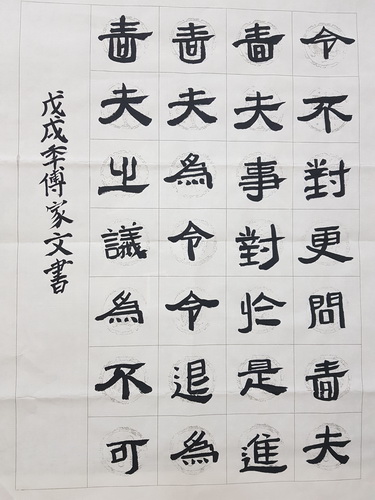 令不對更問嗇夫
嗇夫事對於是進
嗇夫為令令退為
嗇夫之議為不可
戊戌秊傅家文書